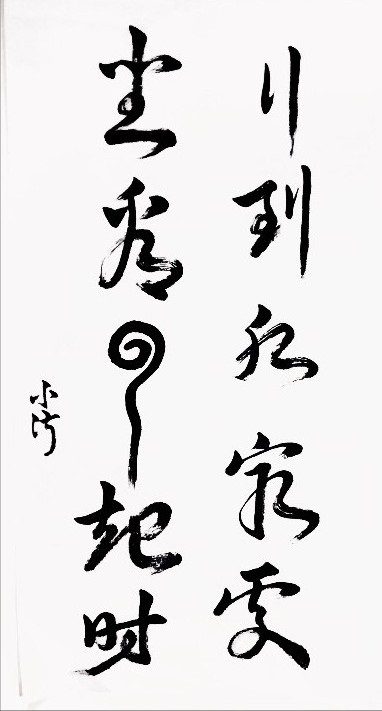 行到水穷处
坐看云起时
小河